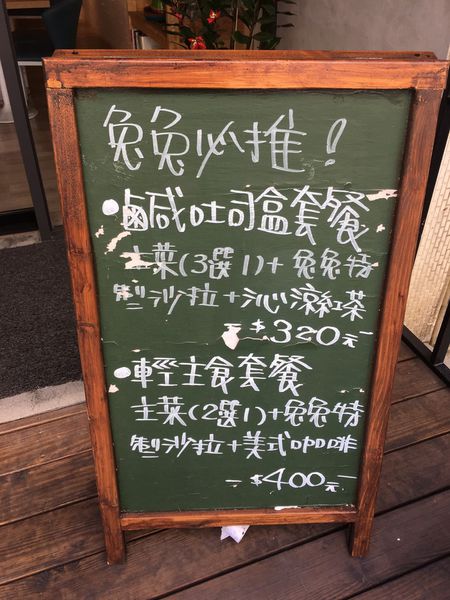 兔兔必推！
•鹹吐司盒套餐
主菜(3選1)+兔兔特
製沙拉+沁涼紅茶
—$320元—
•輕主食套餐
主菜(2選1)+兔兔特
製沙拉+美式咖啡
—$400元—